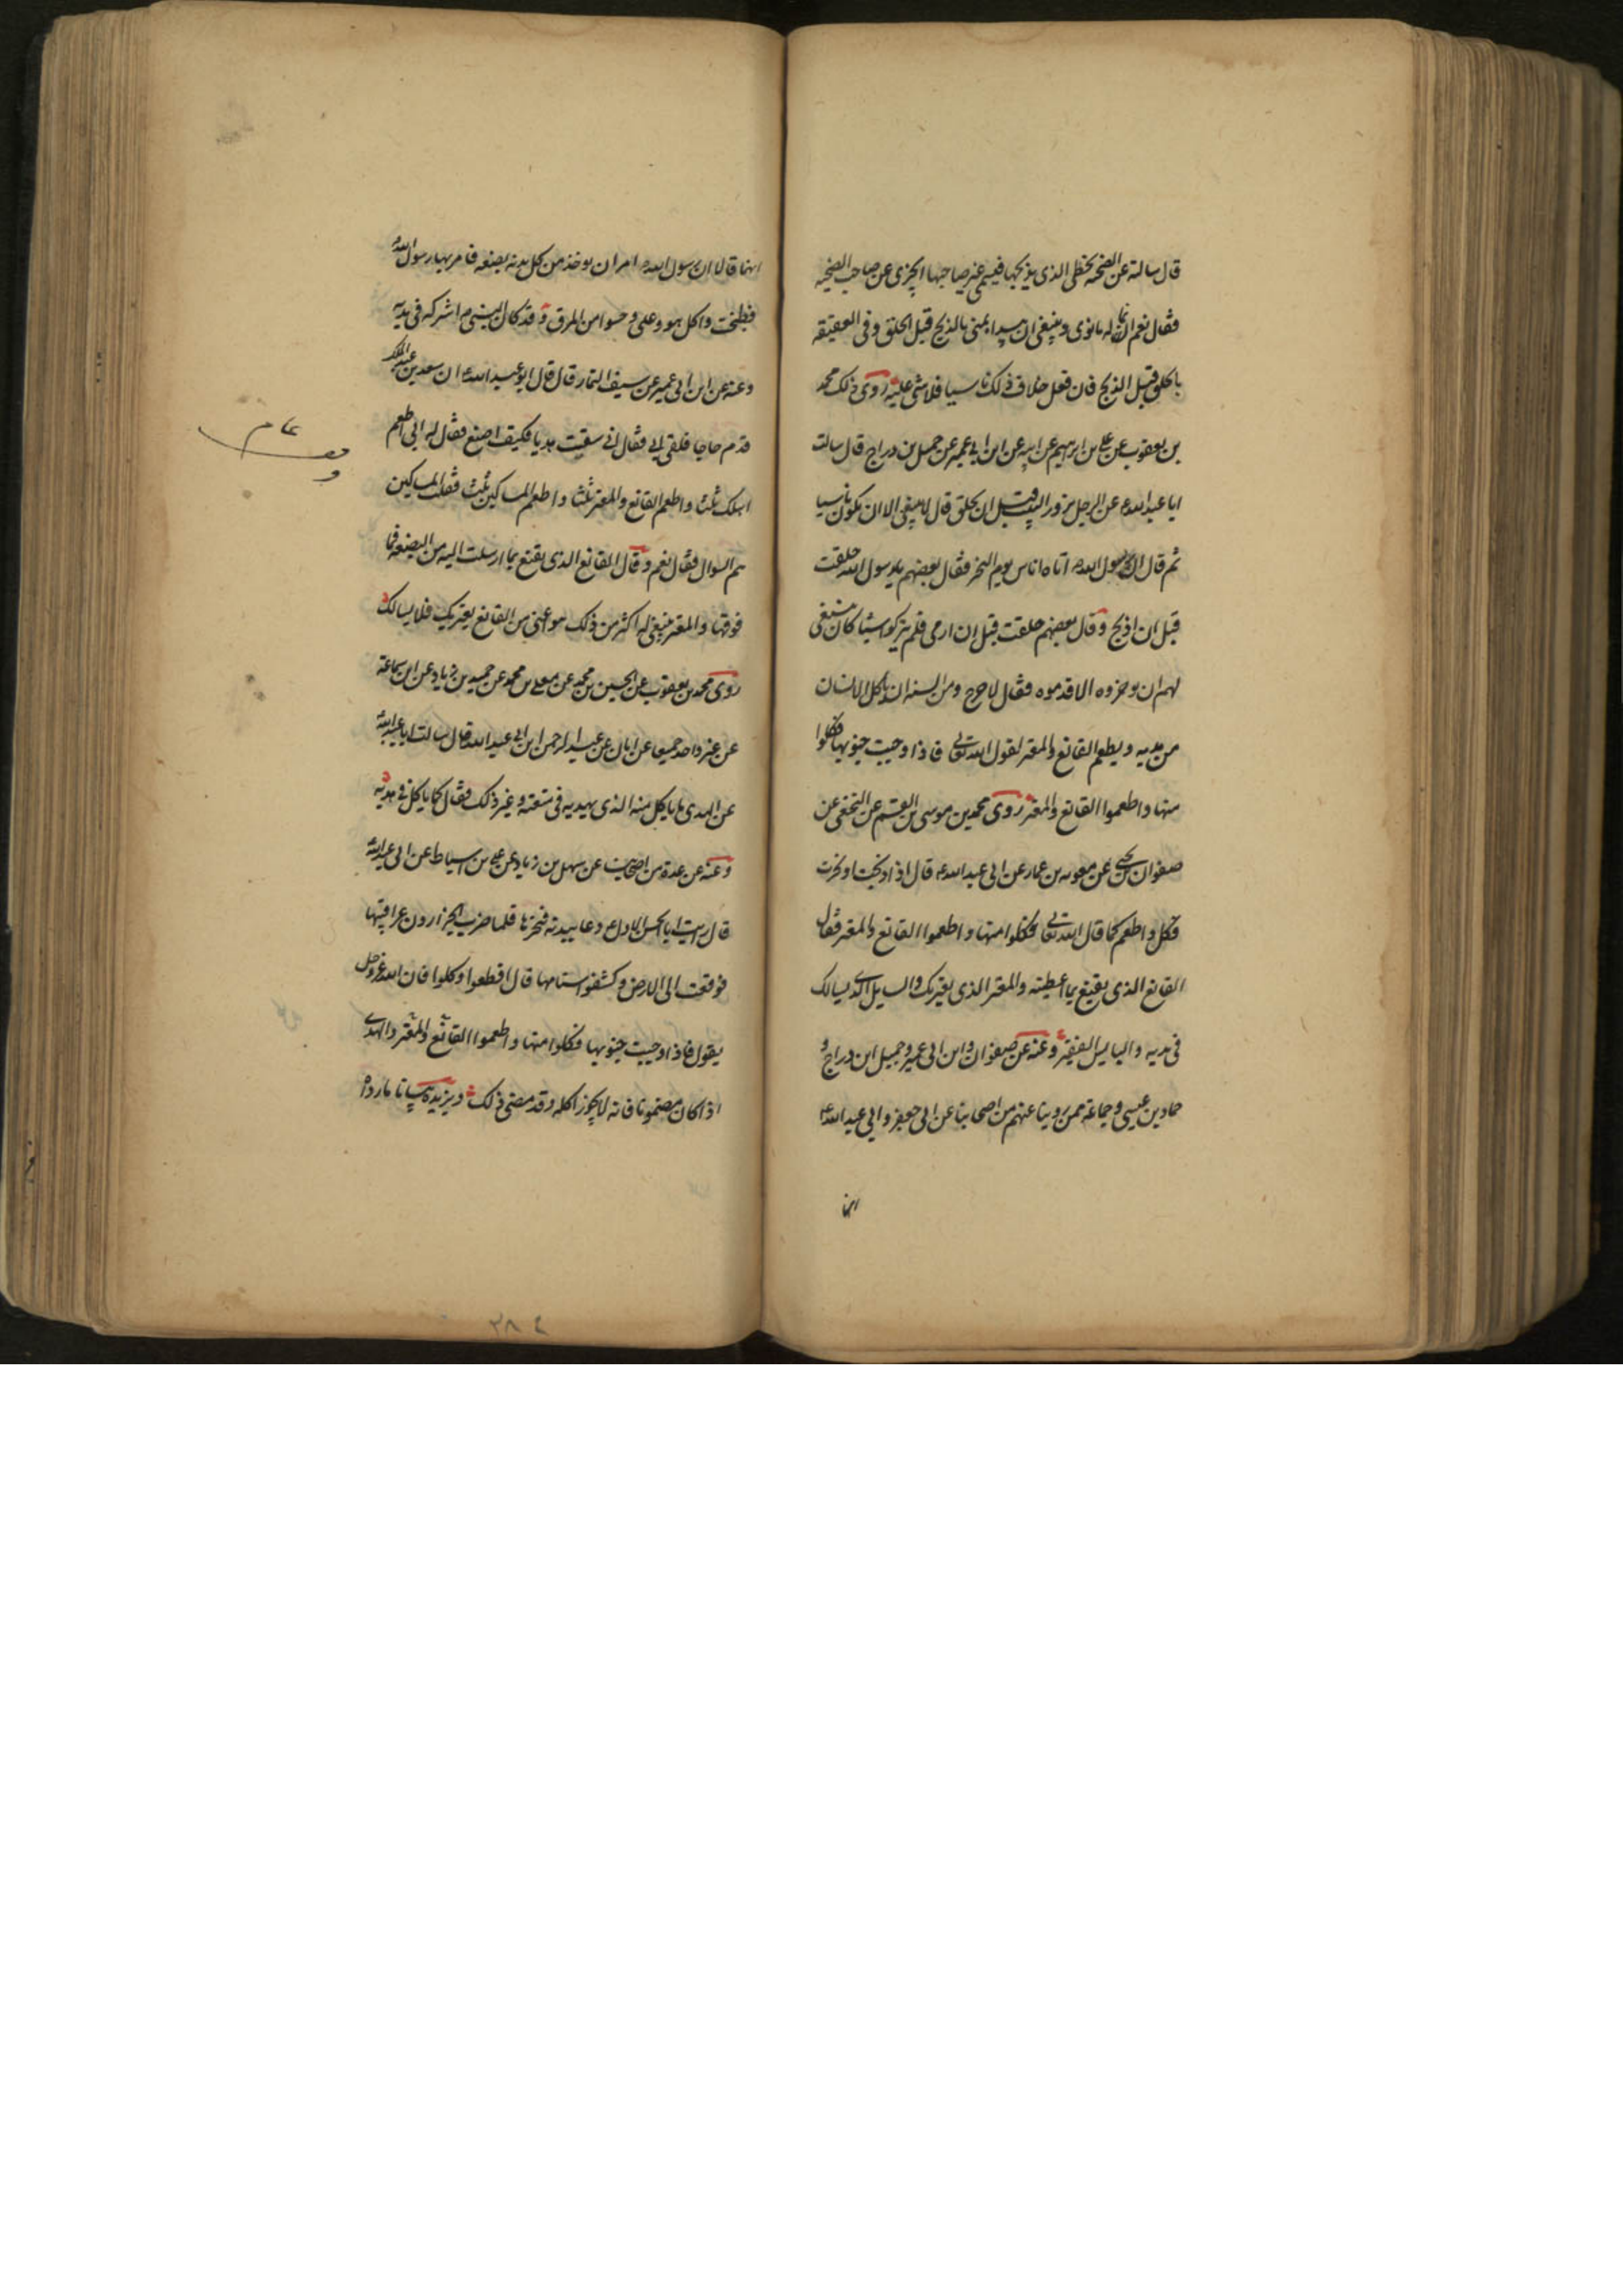 قال سالته عن الضحیه یخطی الذی یذبحها فیسمی غیر صاحبها ایجزی عن صاحب الضحیه
فقال نعم انما له ما نوی و ینبغی ان یبدا بمنی بالذبح قبل الحلق وفی العقیقه
بالحلق قبل الذبح فان فعل خلاف ذلک ناسیا فلا شی علیه روی ذلک محمد
بن یعقوب عن علی بن ابرهیم عن ابیه عن ابن ابی عمیر عن جمیل بن دراج قال سالت
ابا عبدالله ع عن الرجل یزور البیت قبل ان یحلق قال لا ینبغی الا ان یکون ناسیا
ثم قال ان رسول الله ص اتاه اناس یوم النحر فقال بعضهم یا رسول الله حلقت
قبل ان اذبح وقال بعضهم حلقت قبل ان ارمی فلم یترکوا شیئا کان ینبغی
لهم ان یوخروه الا قدموه فقال لا حرج ومن السنه ان یاکل الانسان
من هدیه و یطعم القانع والمعتر لقول الله تعالی فاذا وجبت جنوبها فکلوا
منها و اطعموا القانع والمعتر روی محمد بن موسی بن القسم عن النخعی عن
صفوان بن یحیی عن معویه بن عمار عن ابی عبد الله ع قال اذا ذبحت او نحرت
فکل و اطعم کما قال الله تعالی فکلوا منها و اطعموا القانع والمعتر فقال
القانع الذی یقنع بما اعطیته والمعتر الذی یعتریک والسایل الذی یسالک
فی یدیه والبایس الفقیر وعنه عن صفوان و ابن ابی عمیر و جمیل ابن دراج و
حماد بن عیسی و جماعة ممن روینا عنهم من اصحابنا عن ابی جعفر و ابی عبد الله ع
انما
انهما قالا ان رسول الله ص امر ان یوخذ من کل بدنه بضعه فامر بها رسول الله
فطبخت واکل هو وعلی وحسوا من المرق وقد کان النبی ص اشرکه فی هدیه
وعنه عن ابن ابی عمیر عن سیف التمار قال قال ابو عبد الله ع ان سعد بن عبد الملک
قدم حاجا فلقی ابی فقال انی سقت هدیا فکیف اصنع فقال له ابی اطعم
اهلک ثلثا واطعم القانع والمعتر ثلثا واطعم المساکین ثلثا فقلت المساکین
هم السوال فقال نعم وقال القانع الذی یقنع بما ارسلت الیه من البضعه فما
فوقها والمعتر ینبغی له اکثر من ذلک هو اغنی من القانع یعتریک فلا یسالک
روی محمد بن یعقوب عن الحسین بن محمد عن معلی بن محمد عن حمید بن زیاد عن ابن سماعة
عن غیر واحد جمیعا عن ابان عن عبد الرحمن ابن ابی عبد الله قال سالت ابا عبد الله
عن الهدی ما یاکل منه الذی یهدیه فی متعته و غیر ذلک فقال کما یاکل فی هدیه
وعنه عن عدة من اصحابنا عن سهل بن زیاد عن علی بن اسباط عن ابی عبد الله
قال رایت ابا الحسن الاول ع دعا ببدنه فنحرها فلما ضرب الجزارون عراقیبها
فوقعت الی الارض و کشفوا سنامها قال اقطعوا وکلوا فان الله عز وجل
یقول فاذا وجبت جنوبها فکلوا منها و اطعموا القانع والمعتر والهدی
اذا کان مضمونا فانه لا یجوز اکله وقد مضی ذلک ویزیده بیانا ما رواه
٢٨٤